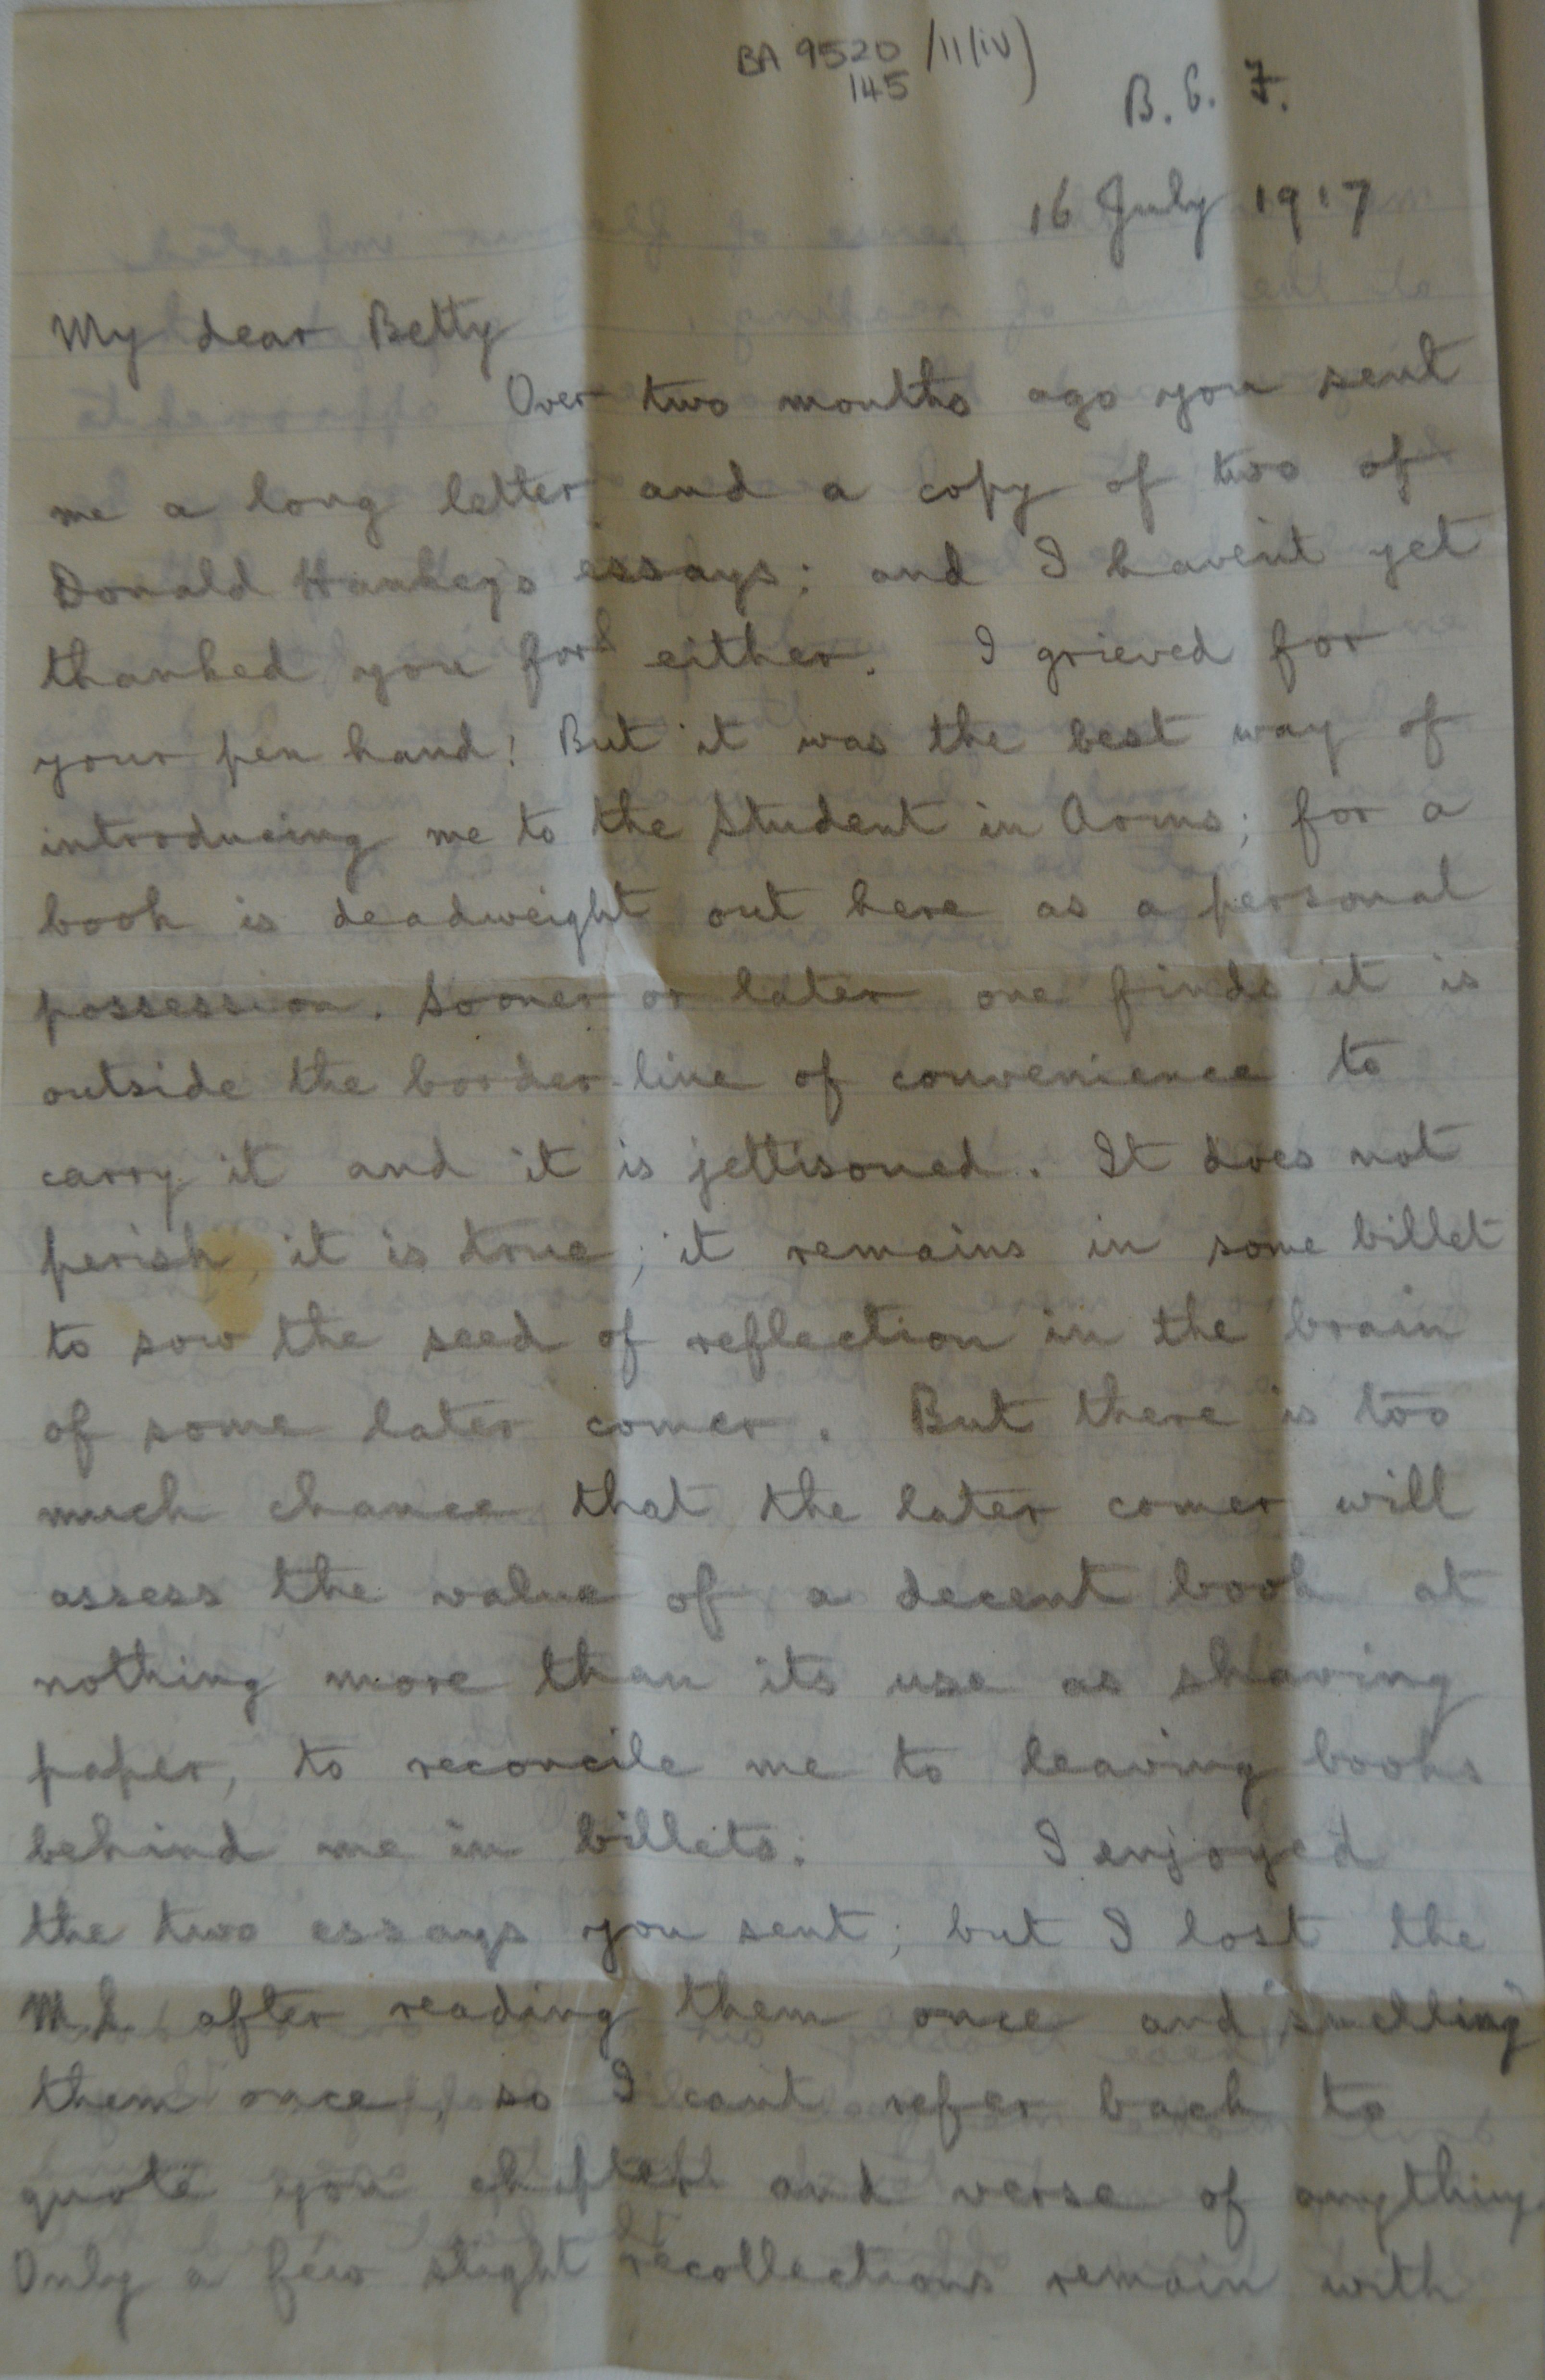 BA 9520/11(iv)
145
B. E. F.
16 July 1917
My dear Betty
Over two months ago you sent
me a long letter and a copy of two of
Donald Hankey's essays; and I haven't yet
thanked you for either. I grieved for
your pen hand! But it was the best way of
introducing me to the Student in Arms; for a
book is deadweight out here as a personal
possession. Sooner or later one finds it is
outside the border-line of convenience to
carry it and it is jettisoned. It does not
perish, it is true; it remains in some billet
to sow the seed of reflection in the brain
of some later comer. But there is too
much chance that the later comer will
assess the value of a decent book at
nothing more than its use as shaving
paper, to reconcile me to leaving books
behind me in billets. I enjoyed
the two essays you sent; but I lost the
MS after reading them once and "smelling"
them once, so I can't refer back to
quote you chapter and verse of anything.
Only a few slight recollections remain with